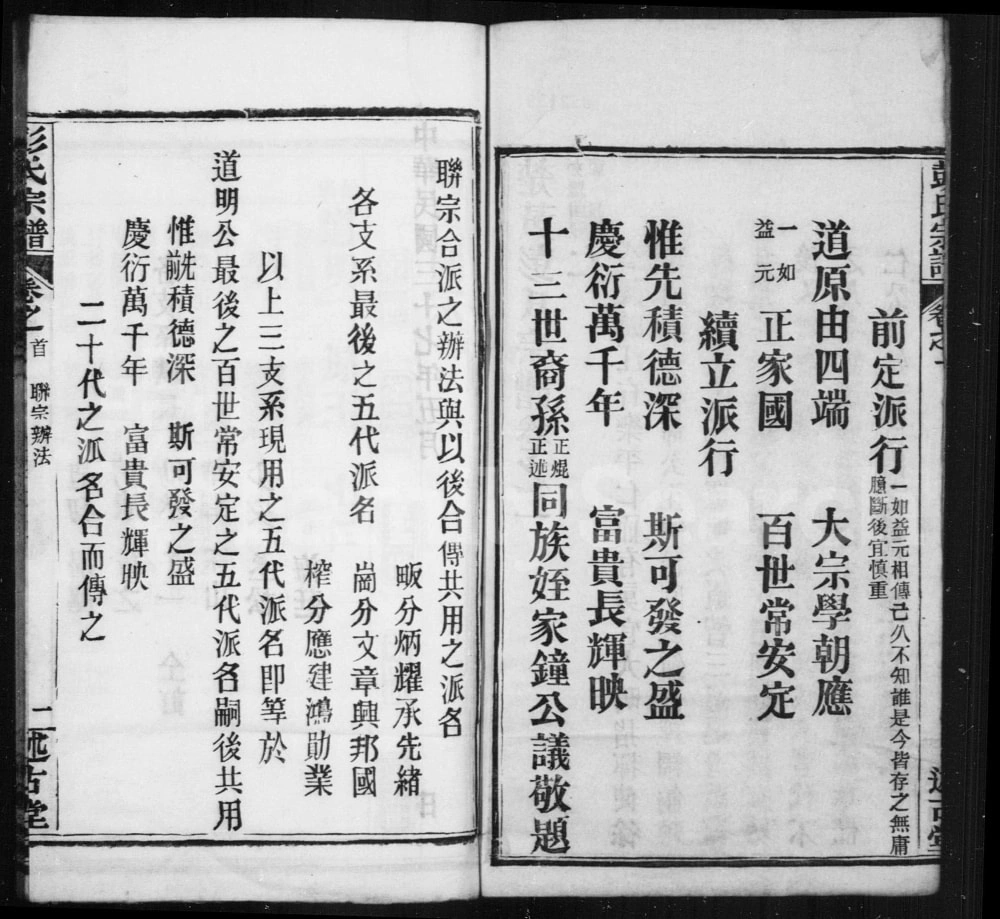 彭氏宗譜 卷之一 述古堂
前定派行 一如益元相傳己久不知誰是今皆存之無庸
臆斷後宜慎重
道原由四端 大宗學朝應
一如
益元 正家國 百世常安定
續立派行
惟先積德深 斯可發之盛
慶衍萬千年 富貴長輝映
十三世裔孫 正焜
正述 同族姪家鐘公議敬題
聯宗合派之辦法與以後合傳共用之派名
畈分炳耀承先緒
各支系最後之五代派名 崗分文章興邦國
榨分應建鴻勛業
以上三支系現用之五代派名即等於
道明公最後之百世常安定之五代派名嗣後共用
惟先積德深 斯可發之盛
慶衍萬千年 富貴長輝映
二十代之派名合而傳之
彭氏宗譜 卷之首 聯宗辦法 二 述古堂